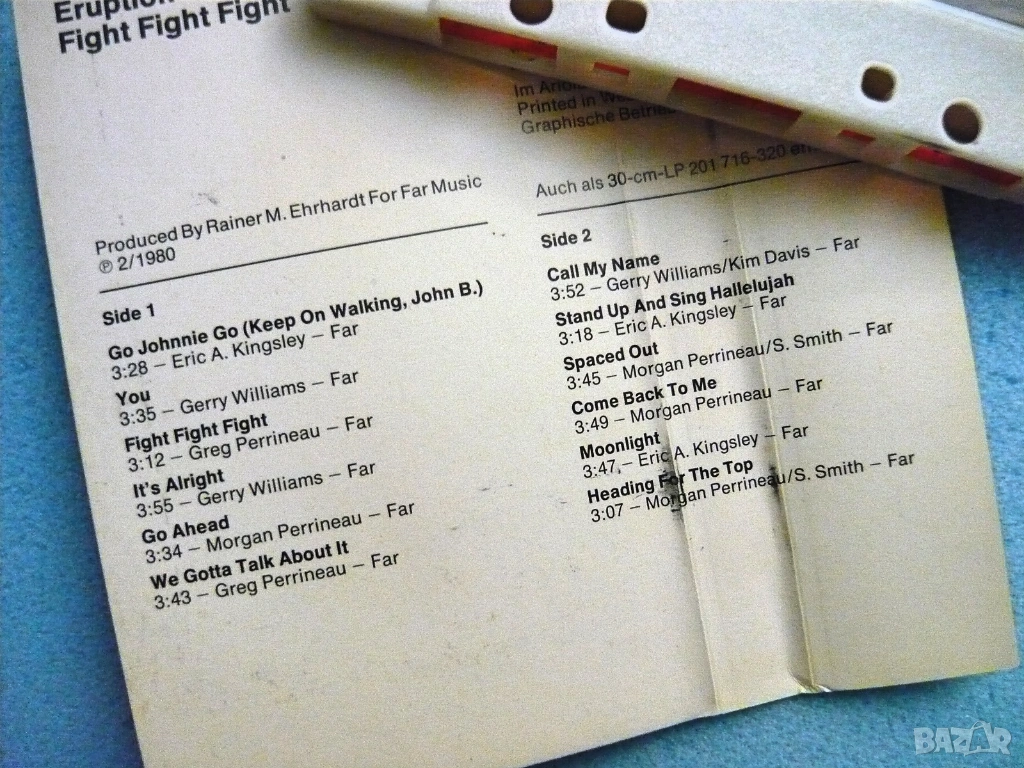 Eruption
Fight Fight Fight
Im
Printed in
Graphische
Auch als 30-cm-LP 201 716-320
Produced By Rainer M. Ehrhardt For Far Music
℗ 2/1980
Side 1
Go Johnnie Go (Keep On Walking, John B.)
3:28 – Eric A. Kingsley – Far
You
3:35 – Gerry Williams – Far
Fight Fight Fight
3:12 – Greg Perrineau – Far
It's Alright
3:55 – Gerry Williams – Far
Go Ahead
3:34 – Morgan Perrineau – Far
We Gotta Talk About It
3:43 – Greg Perrineau – Far
Side 2
Call My Name
3:52 – Gerry Williams/Kim Davis – Far
Stand Up And Sing Hallelujah
3:18 – Eric A. Kingsley – Far
Spaced Out
3:45 – Morgan Perrineau/S. Smith – Far
Come Back To Me
3:49 – Morgan Perrineau – Far
Moonlight
3:47 – Eric A. Kingsley – Far
Heading For The Top
3:07 – Morgan Perrineau/S. Smith – Far
BAZAR